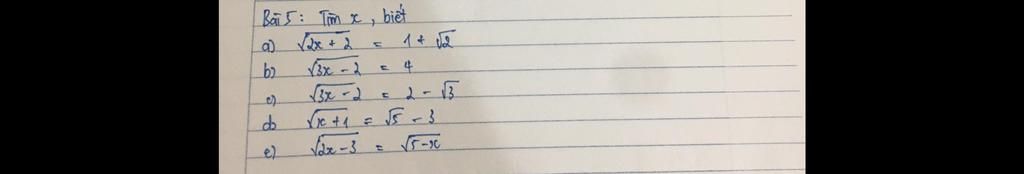 Bài 5 : Tìm x , biết
a) √2x + 2 = 1 + √2
b) √3x - 2 = 4
c) √3x - 2 = 2 - √3
d) √x + 1 = √5 - 3
e) √2x - 3 = √5 - x